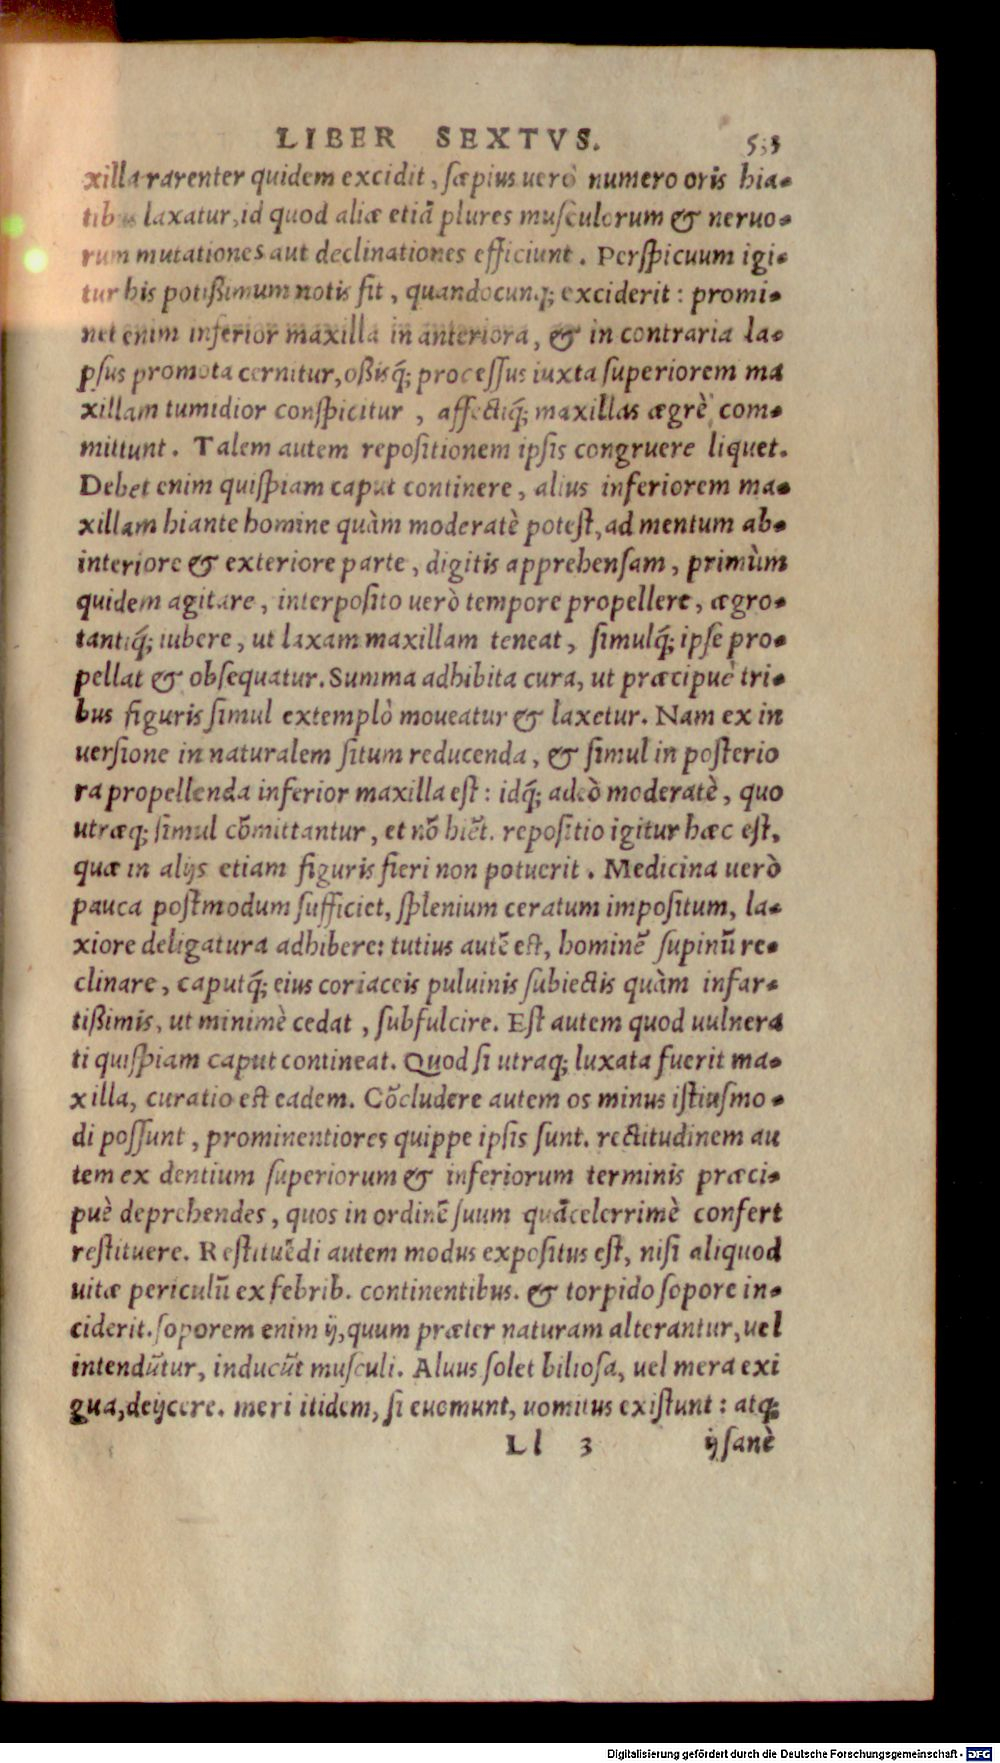 LIBER SEXTVS. 533
xilla rarenter quidem excidit, sæpius uerò numero oris hia-
tibus laxatur, id quod aliæ etiã plures musculorum & neruo-
rum mutationes aut declinationes efficiunt. Perspicuum igi-
tur his potißimum notis fit, quandocunq; exciderit: promi-
net enim inferior maxilla in anteriora, & in contraria la-
psus promota cernitur, oßisq́; processus iuxta superiorem ma
xillam tumidior conspicitur, affectiq́; maxillas ægrè com-
mittunt. Talem autem repositionem ipsis congruere liquet.
Debet enim quispiam caput continere, alius inferiorem ma-
xillam hiante homine quàm moderatè potest, ad mentum ab-
interiore & exteriore parte, digitis apprehensam, primùm
quidem agitare, interposito uerò tempore propellere, ægro-
tantiq́; iubere, ut laxam maxillam teneat, simulq́; ipse pro-
pellat & obsequatur. Summa adhibita cura, ut præcipuè tri-
bus figuris simul extemplò moueatur & laxetur. Nam ex in
uersione in naturalem situm reducenda, & simul in posterio
ra propellenda inferior maxilla est: idq́; adeò moderatè, quo
utræq; simul cõmittantur, et nõ hiẽt. repositio igitur hæc est,
quæ in alijs etiam figuris fieri non potuerit. Medicina uerò
pauca postmodum sufficiet, splenium ceratum impositum, la-
xiore deligatura adhibere: tutius autẽ est, hominẽ supinũ re-
clinare, caputq́; eius coriaceis puluinis subiectis quàm infar-
tißimis, ut minimè cedat, subfulcire. Est autem quod uulnera
ti quispiam caput contineat. Quod si utraq; luxata fuerit ma-
xilla, curatio est eadem. Cõcludere autem os minus istiusmo-
di possunt, prominentiores quippe ipsis sunt. rectitudinem au
tem ex dentium superiorum & inferiorum terminis præci-
puè deprehendes, quos in ordinẽ suum quãcelerrimè confert
restituere. Restituẽdi autem modus expositus est, nisi aliquod
uitæ periculũ ex febrib. continentibus. & torpido sopore in-
ciderit. soporem enim ij, quum præter naturam alterantur, uel
intendũtur, inducũt musculi. Aluus solet biliosa, uel mera exi
gua, deijcere. meri itidem, si euomunt, uomitus existunt: atq;
Ll 3 ij sanè
Digitalisierung gefördert durch die Deutsche Forschungsgemeinschaft - DFG